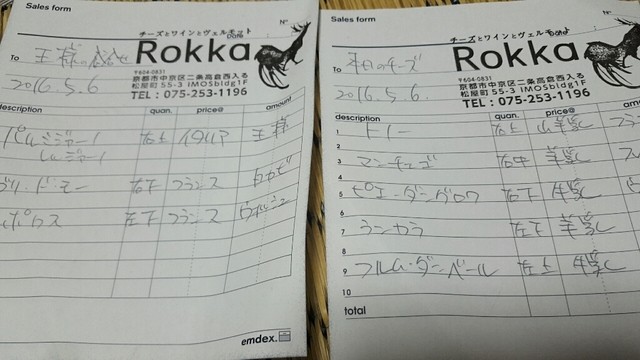 Sales form
チーズとワインとヴェルモット
Date
N°
To
Rokka
2016.5.6
〒604-0831
京都市中京区二条高倉西入る
松屋町 55-3 iMOSbldg1F
TEL : 075-253-1196
description
quan.
price@
amount
パルミジャーノ
右上
イタリア
王様
右下
フランス
左下
フランス
emdex.
Sales form
チーズとワインとヴェルモット
Date
N°
To
本日のチーズ
Rokka
2016.5.6.
〒604-0831
京都市中京区二条高倉西入る
松屋町 55-3 iMOSbldg1F
TEL : 075-253-1196
description
quan.
price@
amount
1
右上
山羊乳
2
3
マンチェゴ
右中
羊乳
4
5
ピエ・ダングロワ
右下
牛乳
6
7
ランカラ
左下
羊乳
8
9
フルム・ダンベール
左上
牛乳
10
total